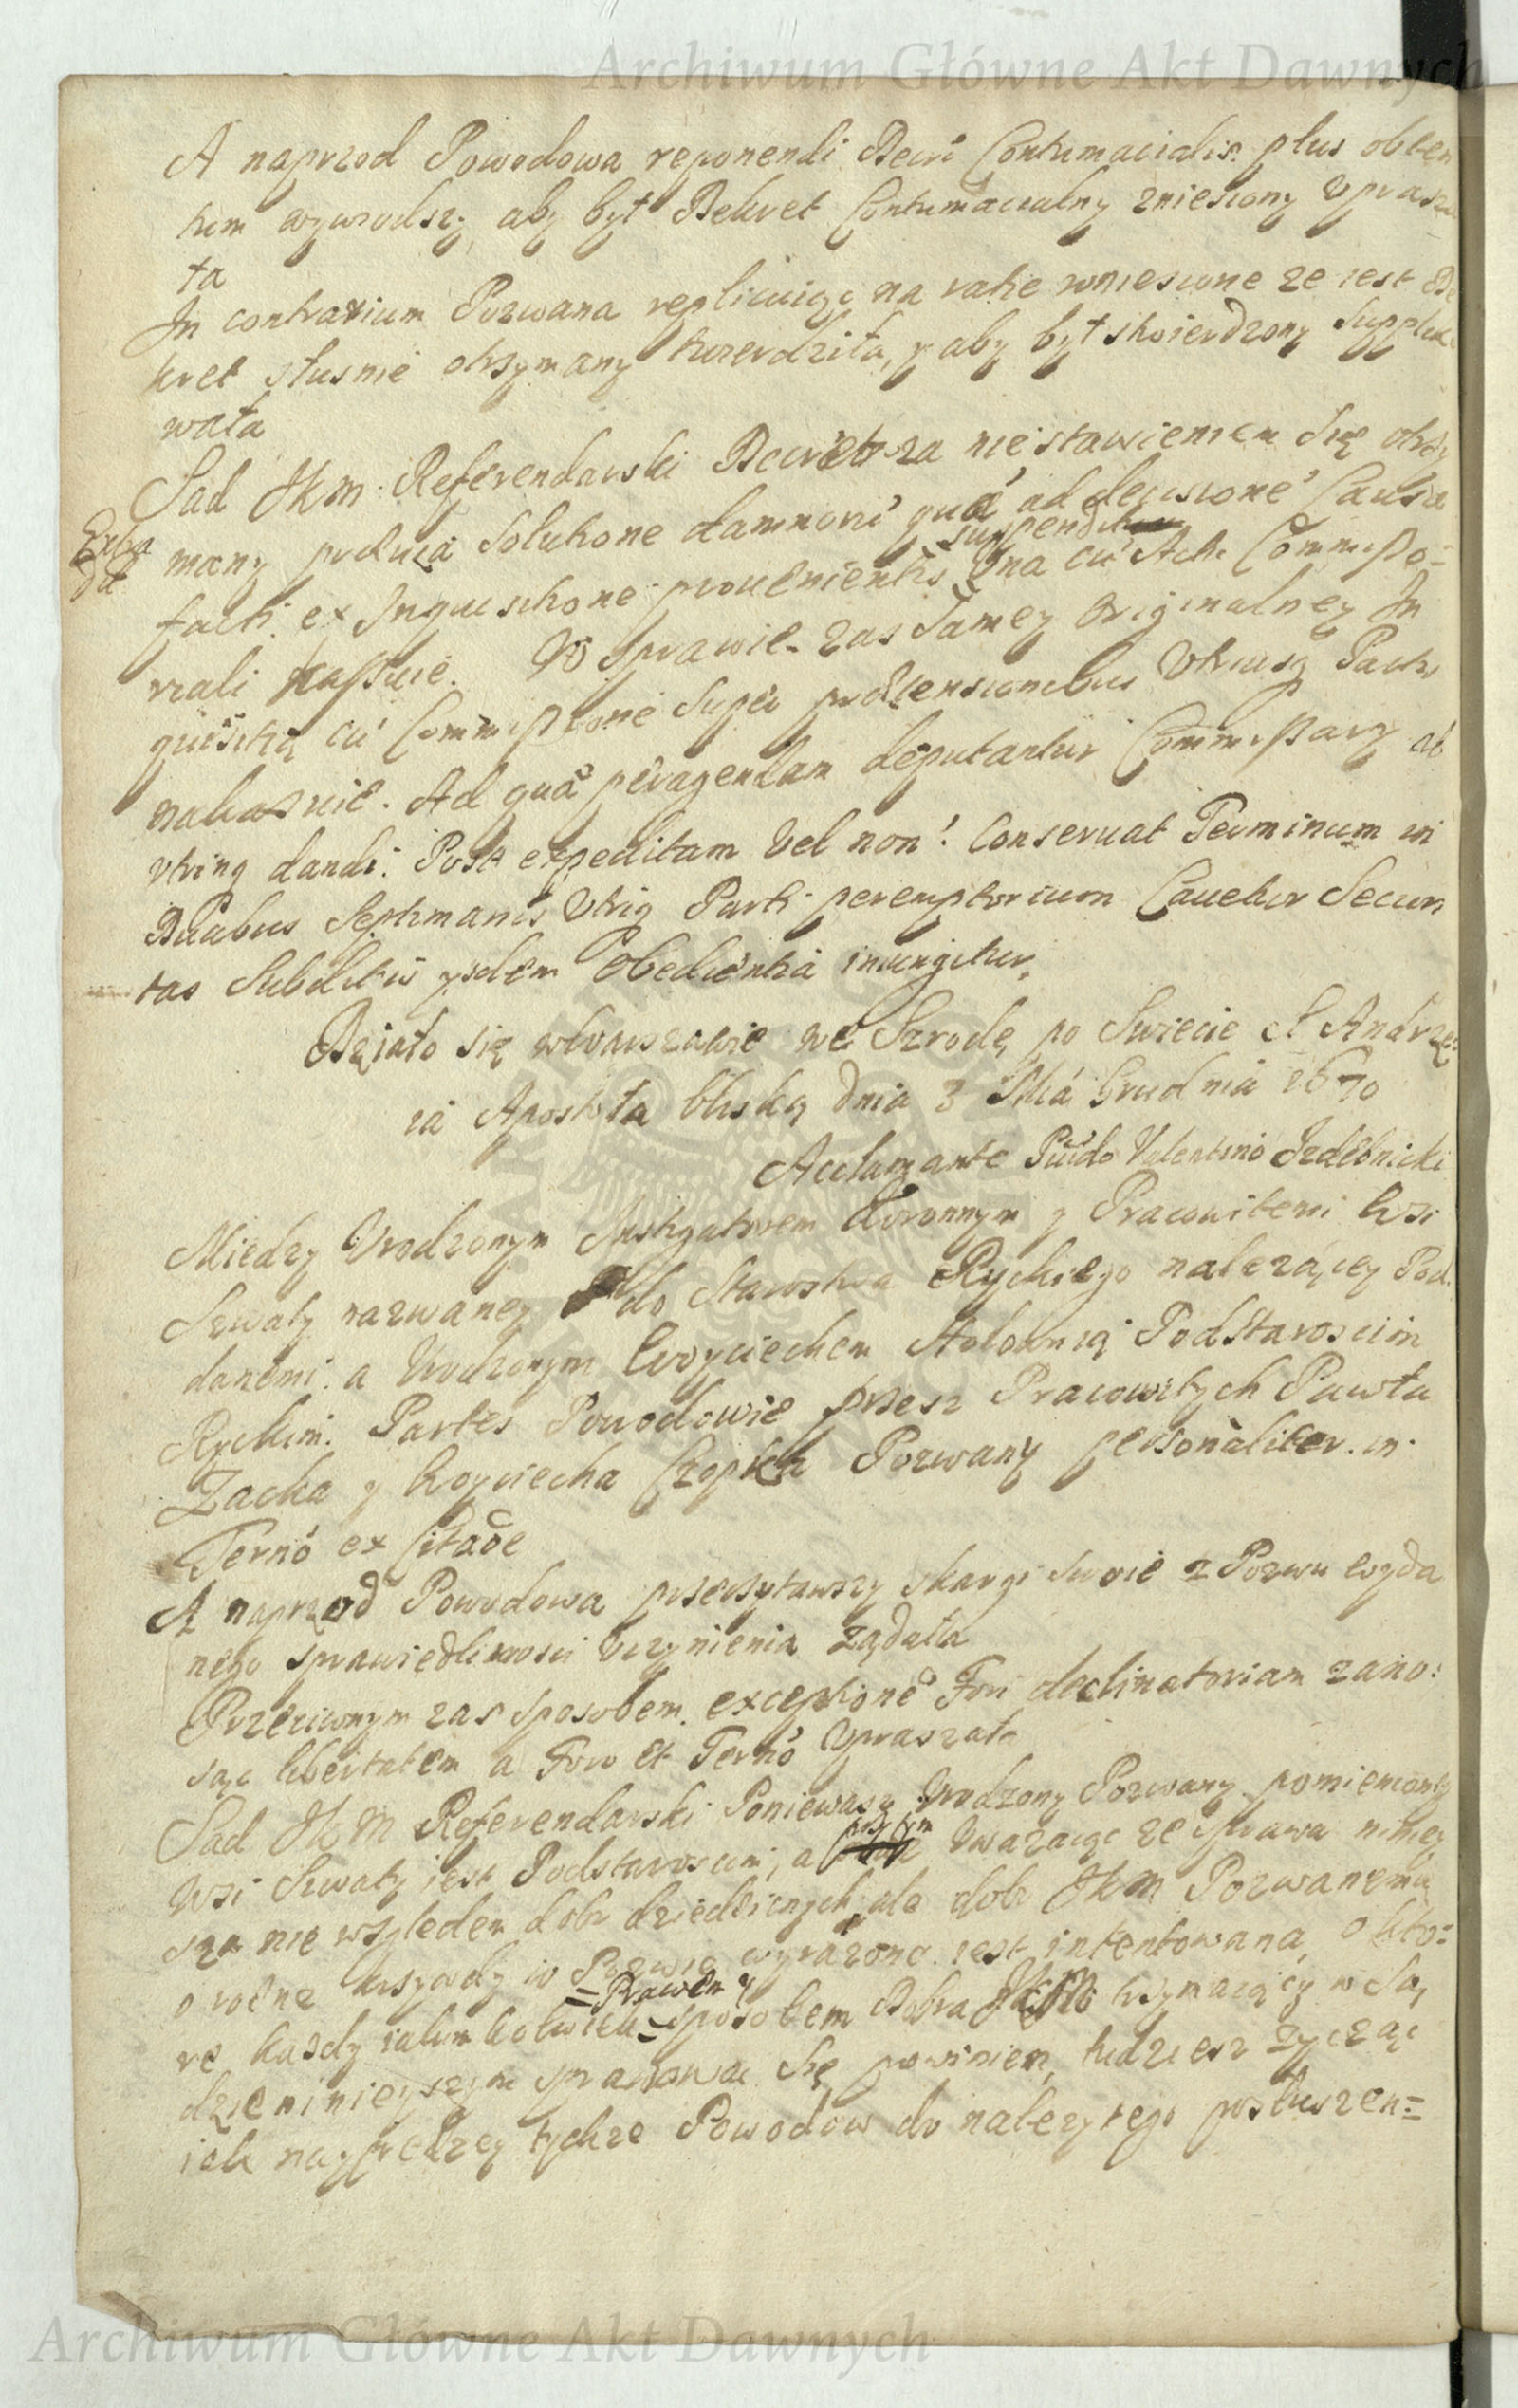 Archiwum Główne Akt Dawnych
A naprzod Powodowa reponendi Decri Contumacialis plus obten
tum wywiodszy, aby był Dekret Contumacialny zniesiony Uprasza
ła
In contrarium Pozwana replicuiąc na takie wniesione ze iest De
kret słusnie otrzymany twierdziła, y aby był stwierdzony Supplico
wała
Sad JKM Referendarski Decret za niestawieniem Się otrzy
many prævia Solutione damnori quā ad decisionē Causæ
suspenditur
facti ex Inquisitione prouenientis Una cū Actu Commisso-
riali kassuie. W Sprawie zas Samey Originalney In
quisitią cū Commissione Super prætensionibus Utriusq Partis
nakazuie. Ad quā peragendam deputantur Commissarij ab
vtrinq dandi. Post expeditam Vel non! Conseruat Terminum in
Duabus Septimanis Utriq Parti peremptorium Cauetur Securi
tas Subditis ysdem Obedientia iniungitur
Działo się w Warszawie we Szrodę po Swiecie S Andrze
ia Apostoła bliską dnia 3 Mca Grudnia 1670
Acclamante Pvido Valentino Izdebnicki
Miedzy Urodzonym Instigatorem Koronnym y Pracowitemi Wsi
Szwaty nazwaney do Starostwa Ryckiego nalezącey Pod
danemi a Urodzonym Woyciechem Stolownią PodStaroscim
Ryckim. Partes Powodowie przesz Pracowitych Pawła
Zacka y Woyciecha Czopka Pozwany personaliter in
Ternō ex Citaōe
A naprzod Powodowa przeczytawszy skargi Swoie z Pozwu wyda
nego sprawiedliwosci Uczynienia ządała
Przeciwnym zas sposobem exceptionē Fori declinatoriam zano:
sząc libertatem a Foro et Ternō Upraszała
Sad JKM Referendarski Poniewasz Urodzony Pozwany pomienioney
Wsi Szwaty iest Podstaroscim, a przytym Uwazaiąc ze Sprawa niniey
sza nie względem dobr dziedzicznych ale dobr JKM Pozwanemu
o rozne krzywdy w Pozwie wyrazone iest intentowana, o kto=
re kazdy iakimkolwiek = Prawem y = sposobem Dobra JKM trzymaiący w Są
dzie ninieyszym sprawowac Się powinien, tudziesz zycząc
iak nayprędzey tychze Powodow do nalezytego posłuszen=
Archiwum Główne Akt Dawnych